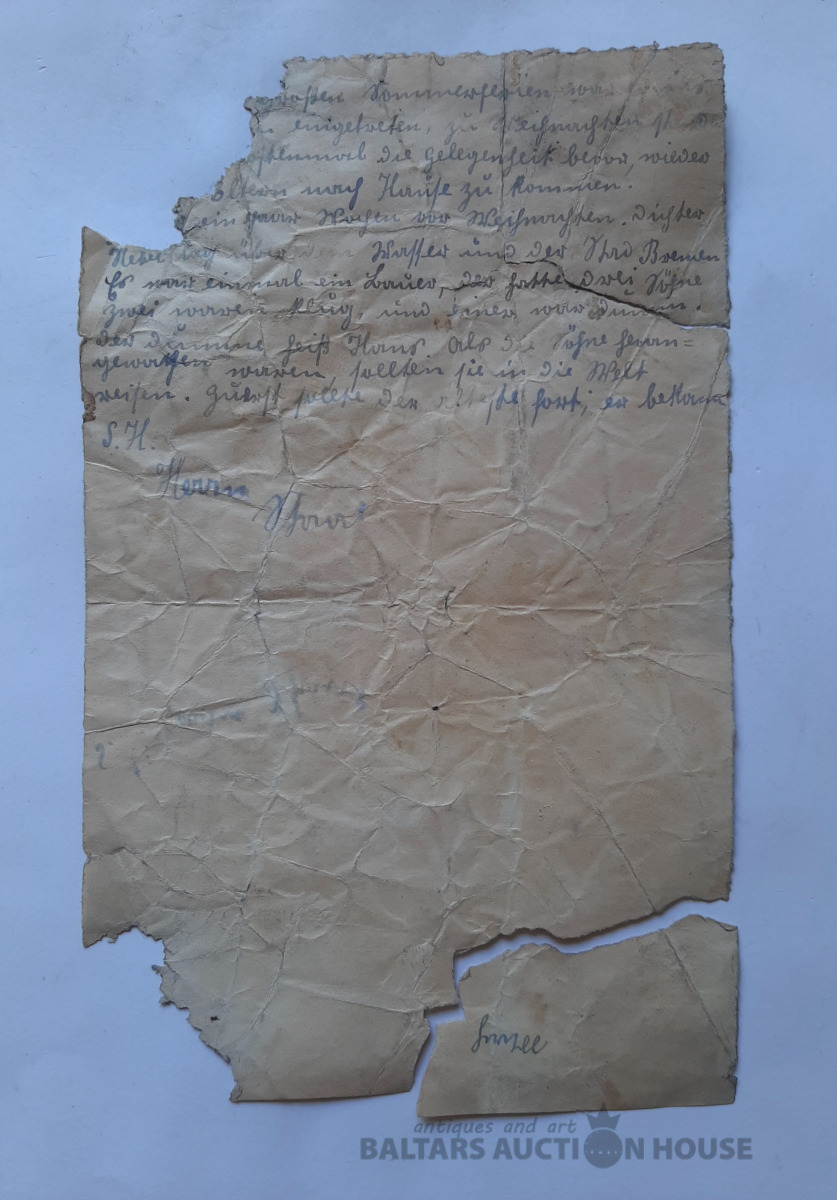 großen Sommerferien war
eingetreten, zu Weihnachten st
erstenmal die Gelegenheit bevor, wieder
Eltern nach Hause zu kommen.
ein paar Wochen vor Weihnachten. Dichter
Nebel lag über dem Wasser und der Stad Bremen
Es war einmal ein Bauer, der hatte drei Söhne
zwei waren klug, und einer war dumm.
der dumme heiß Hans. Als die Söhne heran=
gewachsen waren, sollten sie in die Welt
reisen. Zuerst sollte der älteste fort; er bekam
S. H.
Herrn
antiques and art
BALTARS AUCTION HOUSE